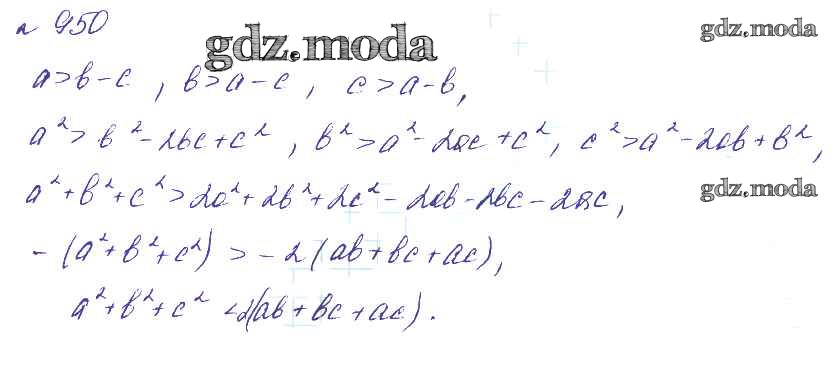 № 950
gdz.moda
gdz.moda
a > b - c, b > a - c, c > a - b,
a² > b² - 2bc + c², b² > a² - 2ac + c², c² > a² - 2ab + b²,
a² + b² + c² > 2a² + 2b² + 2c² - 2ab - 2bc - 2ac,
gdz.moda
- (a² + b² + c²) > - 2 (ab + bc + ac),
a² + b² + c² < 2(ab + bc + ac).